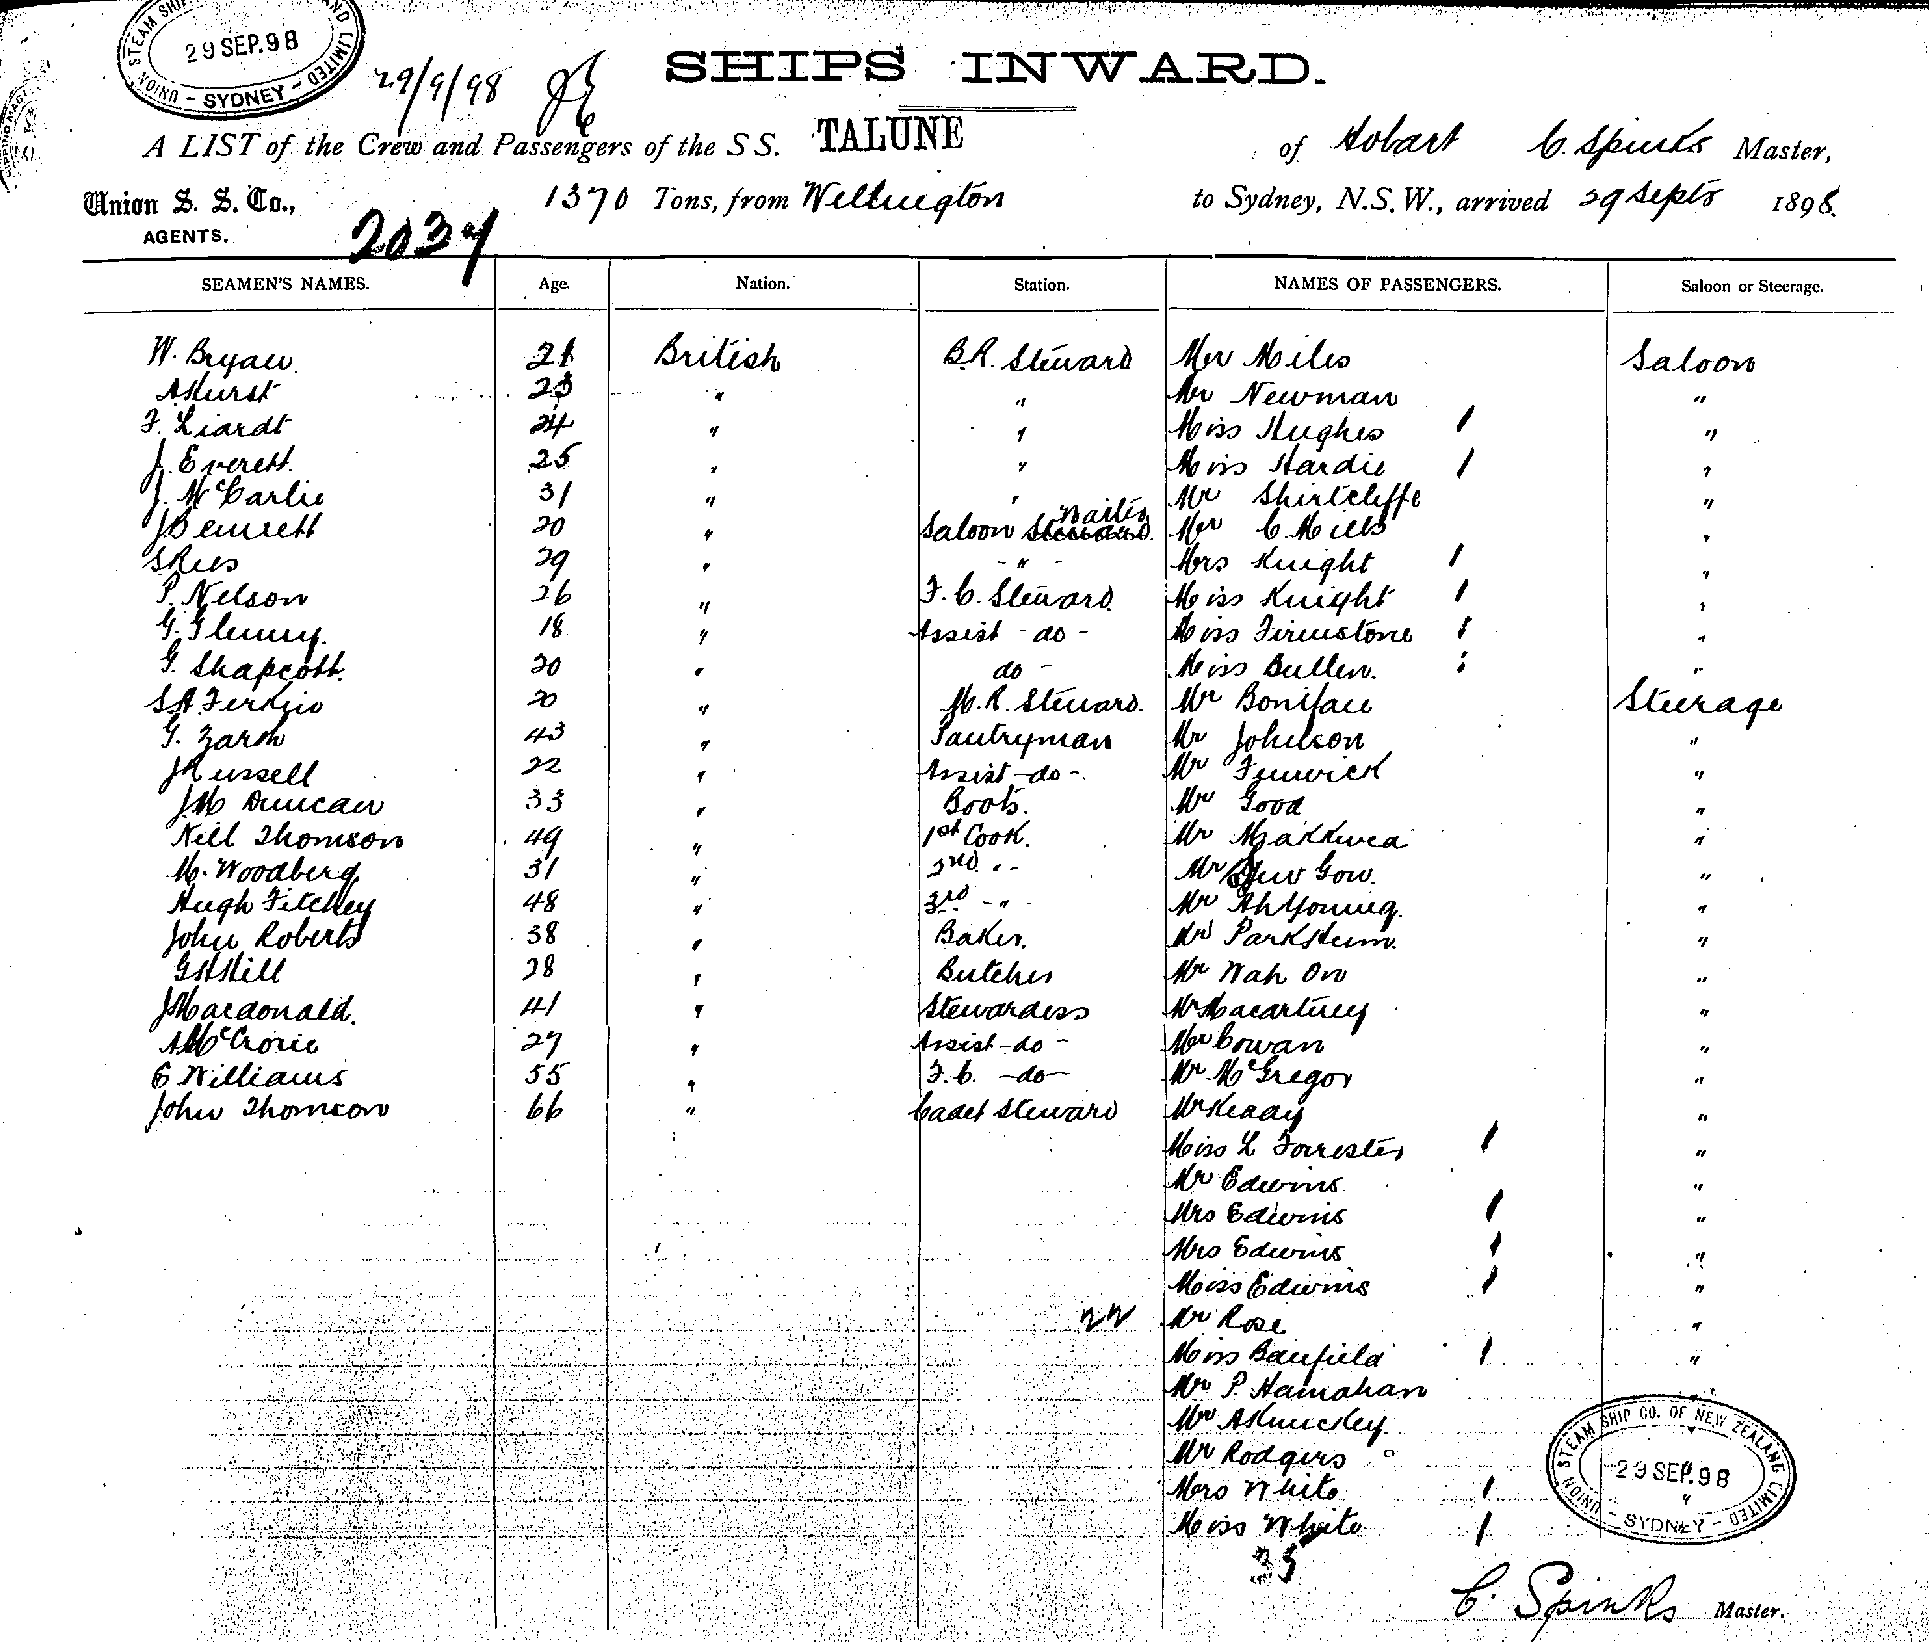 29 SEP. 98
UNION STEAM SHIP LIMITED - SYDNEY -
29/9/98
SHIPS INWARD.
A LIST of the Crew and Passengers of the S S. TALUNE of Hobart C. Spinks Master,
Union S. S. Co., 1370 Tons, from Wellington to Sydney, N.S.W., arrived 29 Septr 1898.
AGENTS. 2034
SEAMEN'S NAMES. Age. Nation. Station. NAMES OF PASSENGERS. Saloon or Steerage.
W. Bryan 21 British B.R. Steward Mr Miles Saloon
A Hurst 23 " " Mr Newman "
F. Liardt 24 " " Miss Hughes "
J. Everett. 25 " " Miss Hardie "
J. McCarlie 31 " " Mr Shirtcliffe "
J Bennett 20 " Saloon Steward Waiter Mr C Mills "
S Rees 29 " - " - Mrs Knight "
P. Nelson 26 " F.C. Steward. Miss Knight "
G. Glenny. 18 " Assist - do - Miss Firmstone "
G. Shapcott. 20 " do - Miss Bullen. "
S A Ferkin 20 " M.R. Steward. Mr Boniface Steerage
G. Zaroh 43 " Pantryman Mr Johnson "
J Russell 22 " Assist - do - Mr Fenwick "
J M Duncan 33 " Boots. Mr Good "
Neil Thomson 49 " 1st Cook. Mr Makkwea "
M. Woodberg 31 " 2nd " - Mr Gow. "
Hugh Fitchey 48 " 3rd - " - Mr Ah Young. "
John Roberts 38 " Baker. Mr Parkstum. "
G H Hill 28 " Butcher Mr Wah On "
J Macdonald. 41 " Stewardess Mr Macartney "
A McCrorie 27 " Assist - do - Mr Cowan "
C Williams 55 " F.C. - do - Mr McGregor "
John Thomson 66 " Cadet Steward Mr Keady "
Miss L Forrester "
Mr Edwins. "
Mrs Edwins "
Mrs Edwins "
Miss Edwins "
22 Mr Rose "
Miss Banfield "
Mr P. Hanrahan "
Mr A Kinckley. "
Mr Rodgers
Mrs White
Miss White
35
UNION STEAM SHIP CO. OF NEW ZEALAND LIMITED - SYDNEY -
29 SEP. 98
C. Spinks Master.